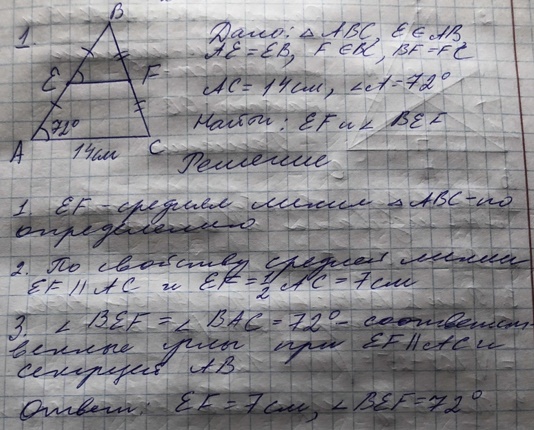 1.
B
E
F
72°
A
C
14см
Дано: △ABC, E∈AB
AE=EB, F∈BC, BF=FC
AC=14см, ∠A=72°
Найти: EF и ∠BEF
Решение
1. EF-средняя линия △ABC-по
определению
2. По свойству средней линии
EF∥AC и EF=1/2 AC=7см
3. ∠BEF=∠BAC=72°-соответст-
венные углы при EF∥AC и
секущей AB
Ответ: EF=7см, ∠BEF=72°